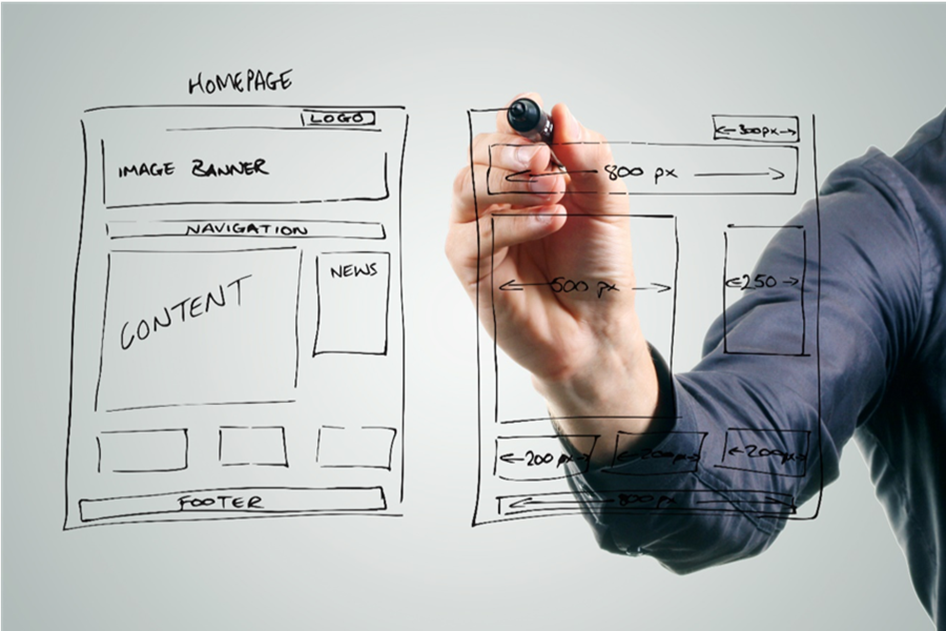 HOMEPAGE
LOGO
IMAGE BANNER
NAVIGATION
CONTENT
NEWS
FOOTER
300px
800 px
500 px
250
200px
200px
200px
800px